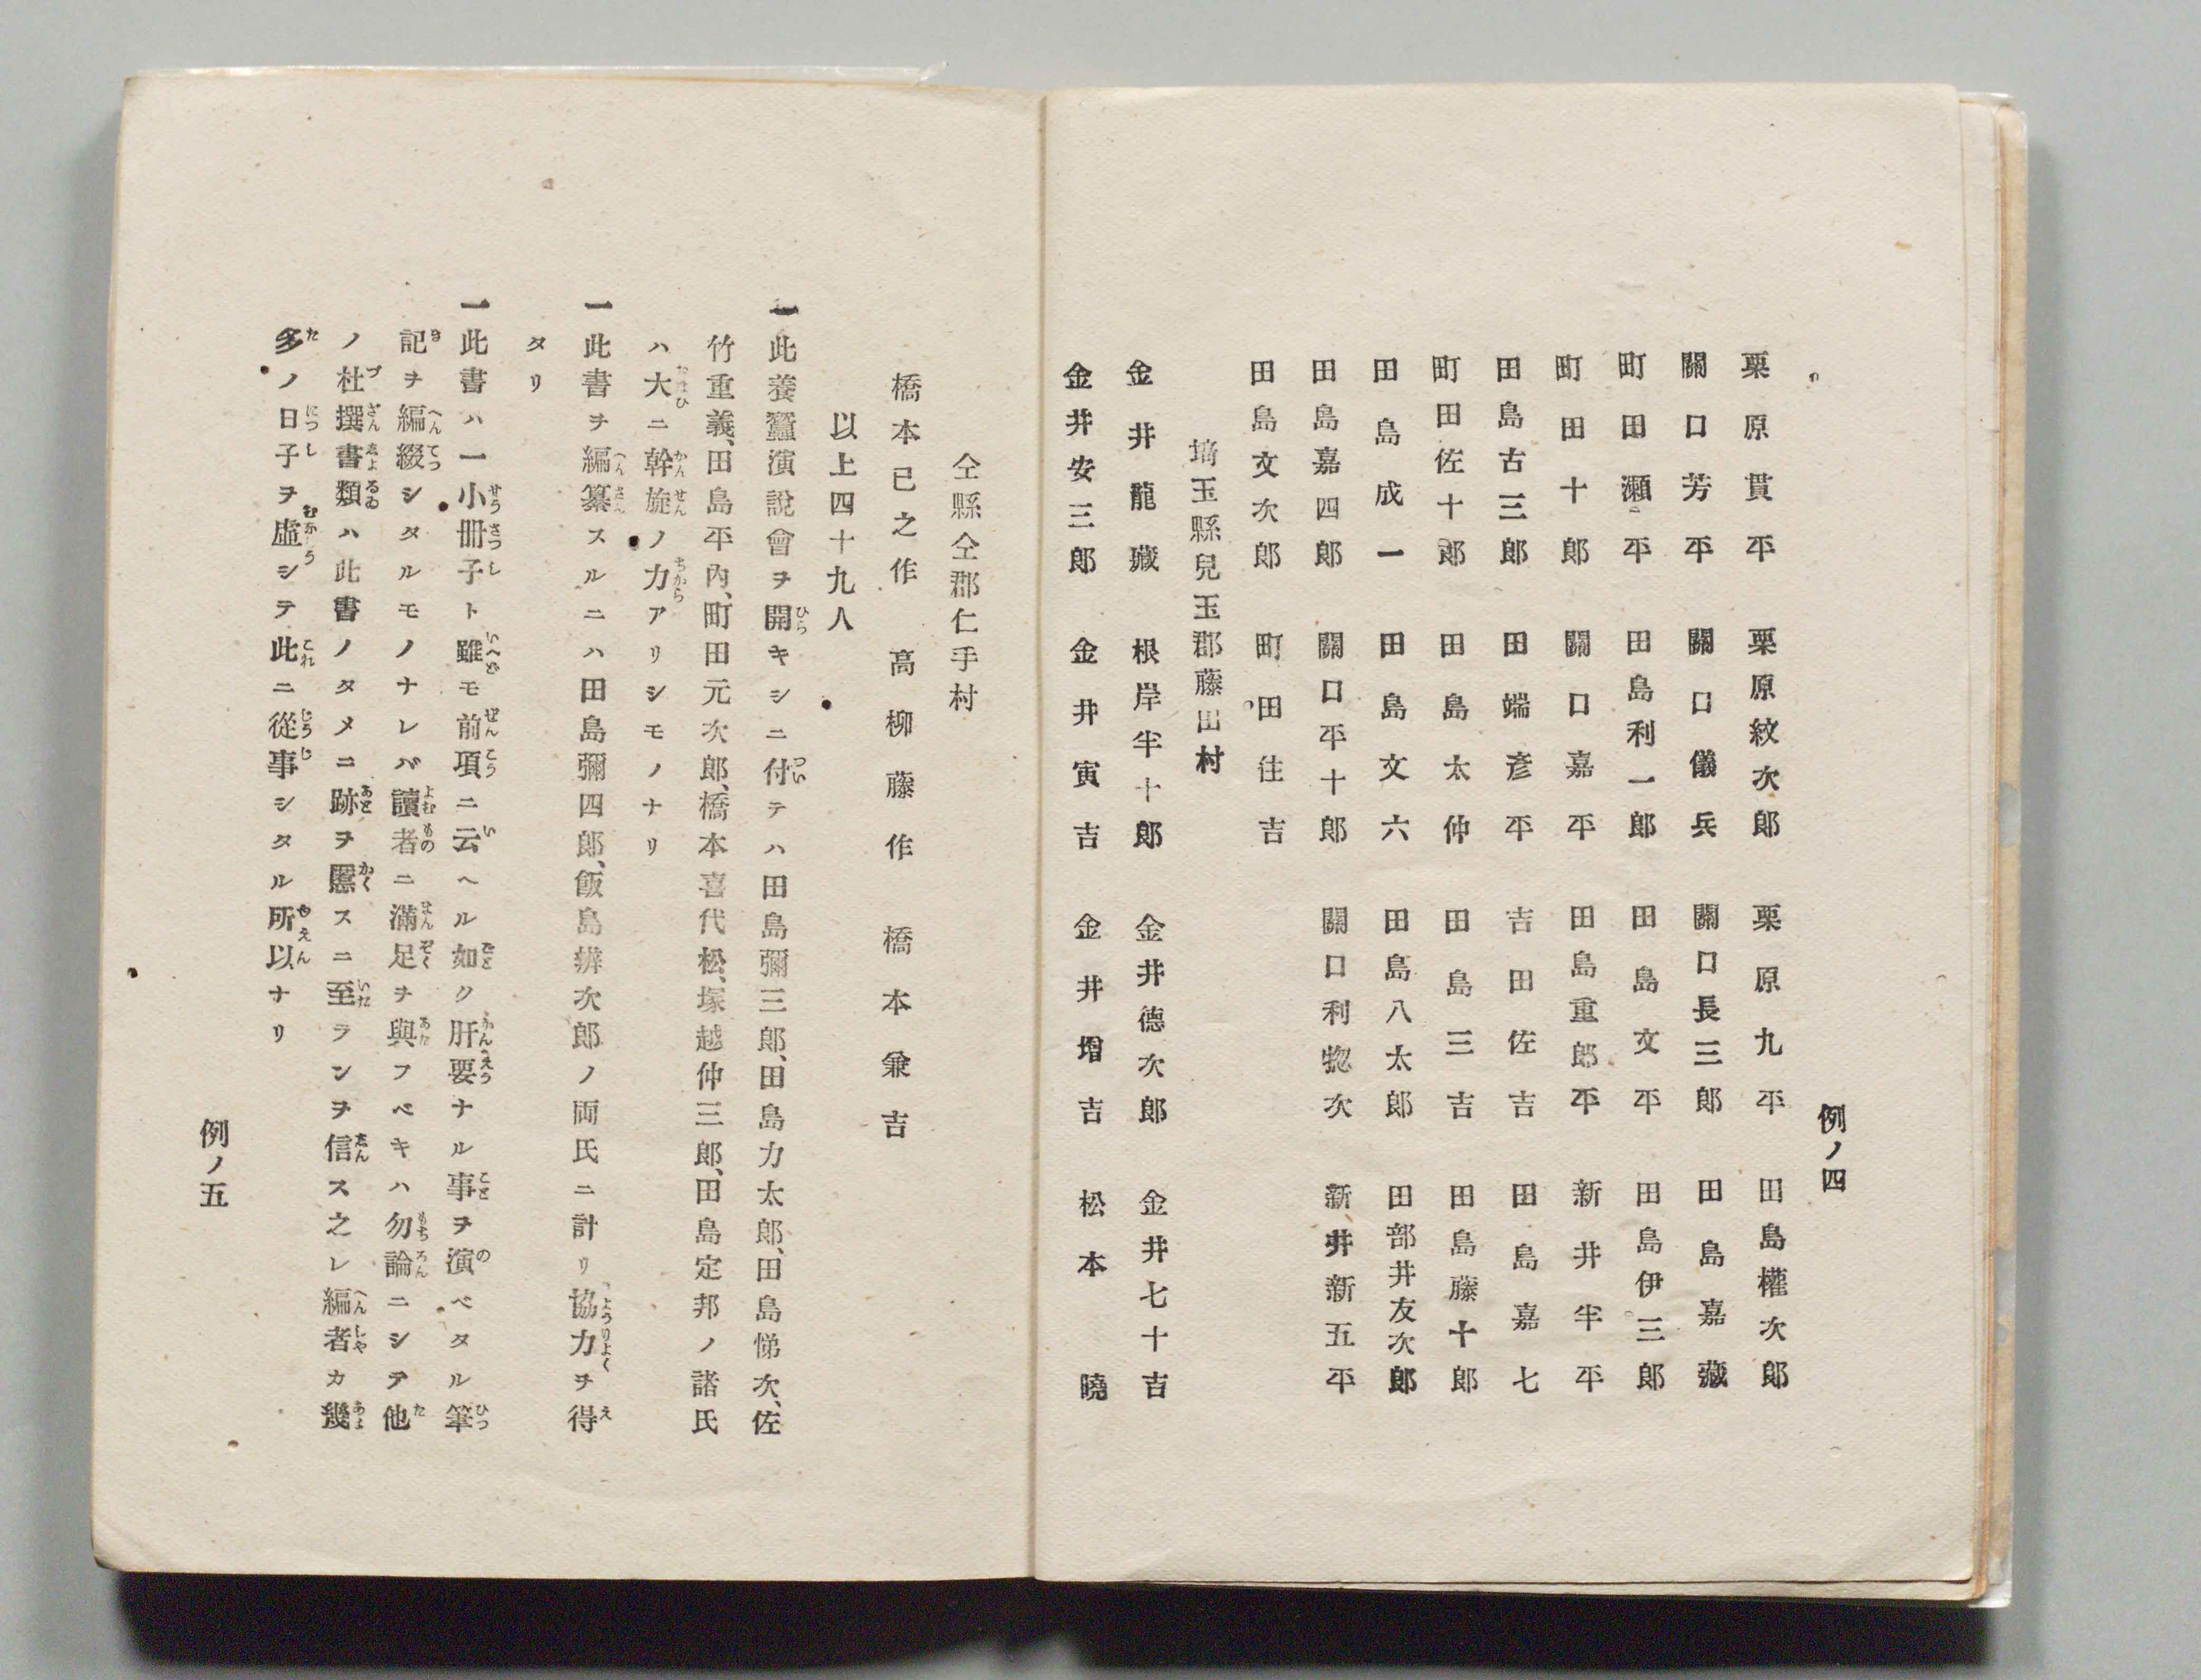 例ノ四
栗原貫平 栗原紋次郎 栗原九平 田島權次郎
關口芳平 關口儀兵 關口長三郎 田島嘉藏
町田瀬平 田島利一郎 田島文平 田島伊三郎
町田十郎 關口嘉平 田島重郎平 新井半平
田島古三郎 田端彦平 吉田佐吉 田島嘉七
町田佐十郎 田島太仲 田島三吉 田島藤十郎
田島成一 田島文六 田島八太郎 田部井友次郎
田島嘉四郎 關口平十郎 關口利惣次 新井新五平
田島文次郎 町田住吉
埼玉縣兒玉郡藤田村
金井龍藏 根岸半十郎 金井德次郎 金井七十吉
金井安三郎 金井寅吉 金井增吉 松本曉
仝縣仝郡仁手村
橋本已之作 高柳藤作 橋本兼吉
以上四十九人
一此養蠶演說會ヲ開キシニ付テハ田島彌三郎、田島力太郎、田島悌次、佐
竹重義、田島平內、町田元次郎、橋本喜代松、塚越仲三郎、田島定邦ノ諸氏
ハ大ニ幹旋ノ力アリシモノナリ
一此書ヲ編纂スルニハ田島彌四郎、飯島辨次郎ノ両氏ニ計リ協力ヲ得
タリ
一此書ハ一小冊子ト雖モ前項ニ云ヘル如ク肝要ナル事ヲ演ベタル筆
記ヲ編綴シタルモノナレバ讀者ニ滿足ヲ與フベキハ勿論ニシテ他
ノ杜撰書類ハ此書ノタメニ跡ヲ匿スニ至ランヲ信ス之レ編者カ幾
多ノ日子ヲ虛シテ此ニ從事シタル所以ナリ
例ノ五